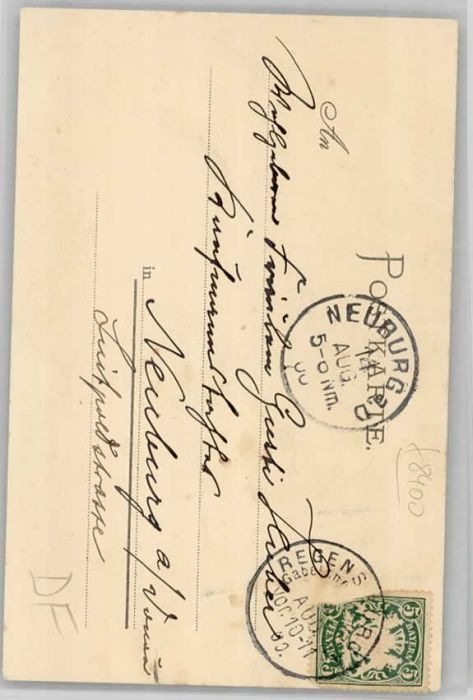 POSTKARTE.
An
Wohlgeboren Fräulein Gusti Huber
in Neuburg a/Donau
Luitpoldstrasse
NEUBURG
AUG.
5-6 Nm.
00
REGENS
AUG
10-11
00.
5 BAYERN 5
£8400
DF